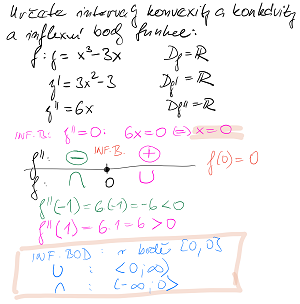 Určete intervaly konvexity a konkávity
a inflexní body funkce:
f: y = x³-3x   Df = ℝ
y' = 3x²-3   Df' = ℝ
y'' = 6x   Df'' = ℝ
INF.B: y'' = 0:   6x = 0 ⇔ x = 0
f'': ⊖ INF.B. ⊕   f(0) = 0
f: ∩ 0 ∪
f''(-1) = 6·(-1) = -6 < 0
f''(1) = 6·1 = 6 > 0
INF. BOD: v bodě [0,0]
∪ : <0;∞)
∩ : (-∞;0>